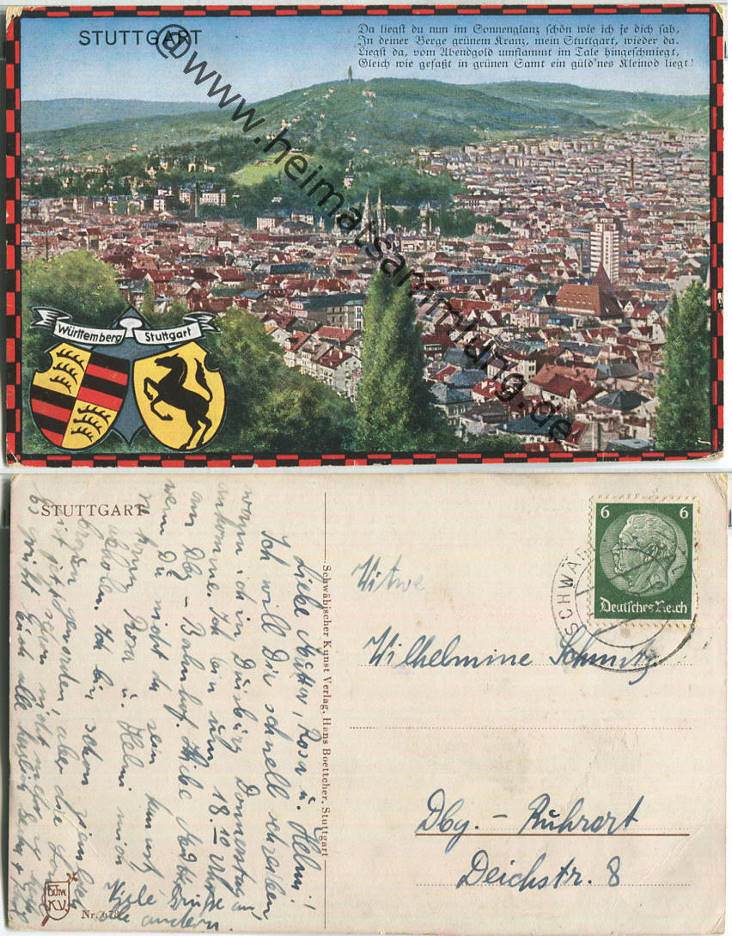 STUTTGART
Da liegst du nun im Sonnenglanz schön wie ich je dich sah,
In deiner Berge grünem Kranz, mein Stuttgart, wieder da.
Liegst da, vom Abendgold umflammt im Tale hingeschmiegt,
Gleich wie gefaßt in grünen Samt ein güld'nes Kleinod liegt!
@www.heimatsammlung.de
Württemberg Stuttgart
STUTTGART
Liebe Mutter, Rosa u. Helmi!
Ich will Dir schnell schreiben,
ich in Duisburg Donnerstag
ankomme. Ich bin um 18.10 Uhr
am Dbg - Bahnhof. Liebe Mutter
wenn Du nicht da sein kannst,
Rosa u. Helmi mich
abholen. Ich bin schon ziemlich
braun geworden, aber die
ist jetzt schon nicht mehr so
Es grüßt Euch alle herzlich
Viele Grüße
alle andern.
Schwäbischer Kunst Verlag, Hans Boettcher, Stuttgart
Schw.
K.V.
Nr.
6 6
Deutsches Reich
SCHWÄB
Witwe
Wilhelmine Schmitz
Dbg. - Ruhrort
Deichstr. 8